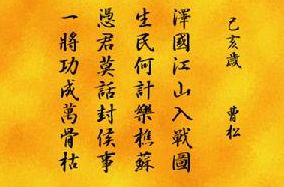 己亥歲 曹松
澤國江山入戰圖
生民何計樂樵蘇
憑君莫話封侯事
一將功成萬骨枯